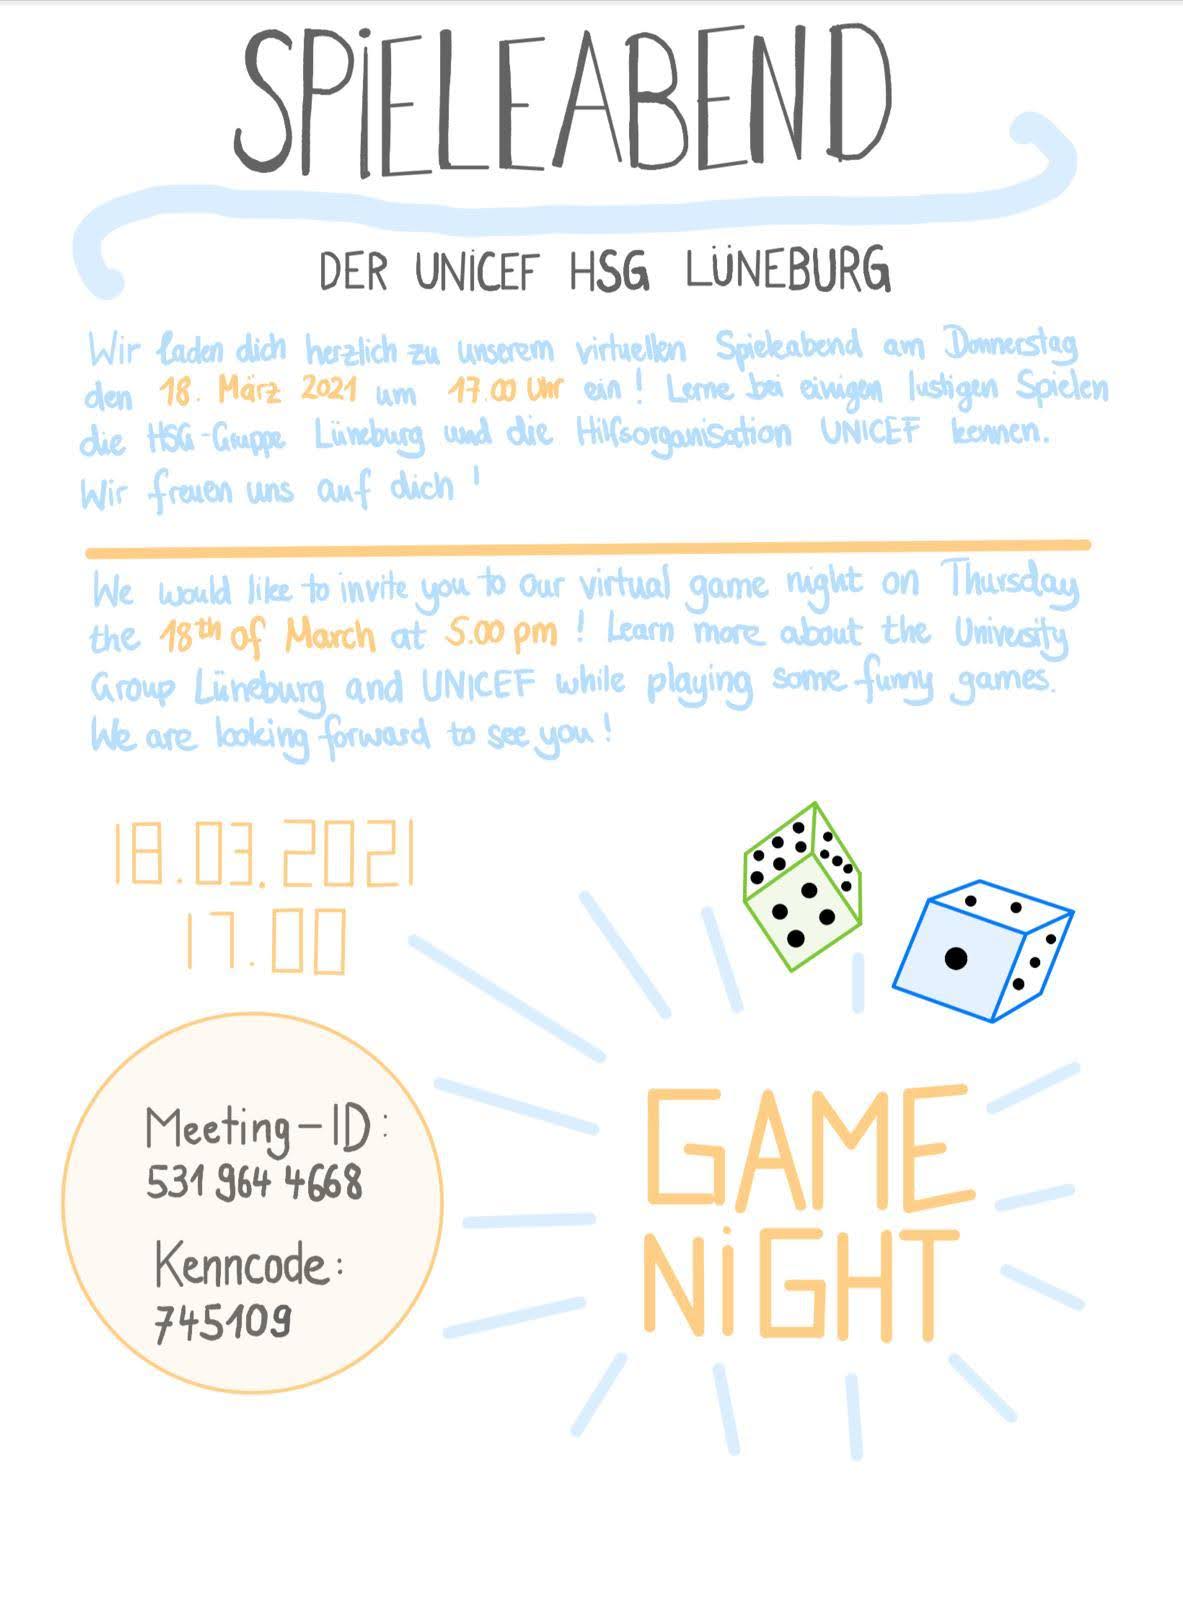 SPiELEABEND
DER UNiCEF HSG LÜNEBURG
Wir laden dich herzlich zu unserem virtuellen Spieleabend am Donnerstag
den 18. März 2021 um 17.00 Uhr ein! Lerne bei einigen lustigen Spielen
die HSG-Gruppe Lüneburg und die Hilfsorganisation UNICEF kennen.
Wir freuen uns auf dich!
We would like to invite you to our virtual game night on Thursday
the 18th of March at 5.00 pm! Learn more about the University
Group Lüneburg and UNICEF while playing some funny games.
We are looking forward to see you!
18.03.2021
17.00
Meeting-ID:
531 964 4668
Kenncode:
745109
GAME
NiGHT